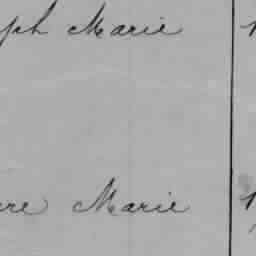 ph Marie
re Marie